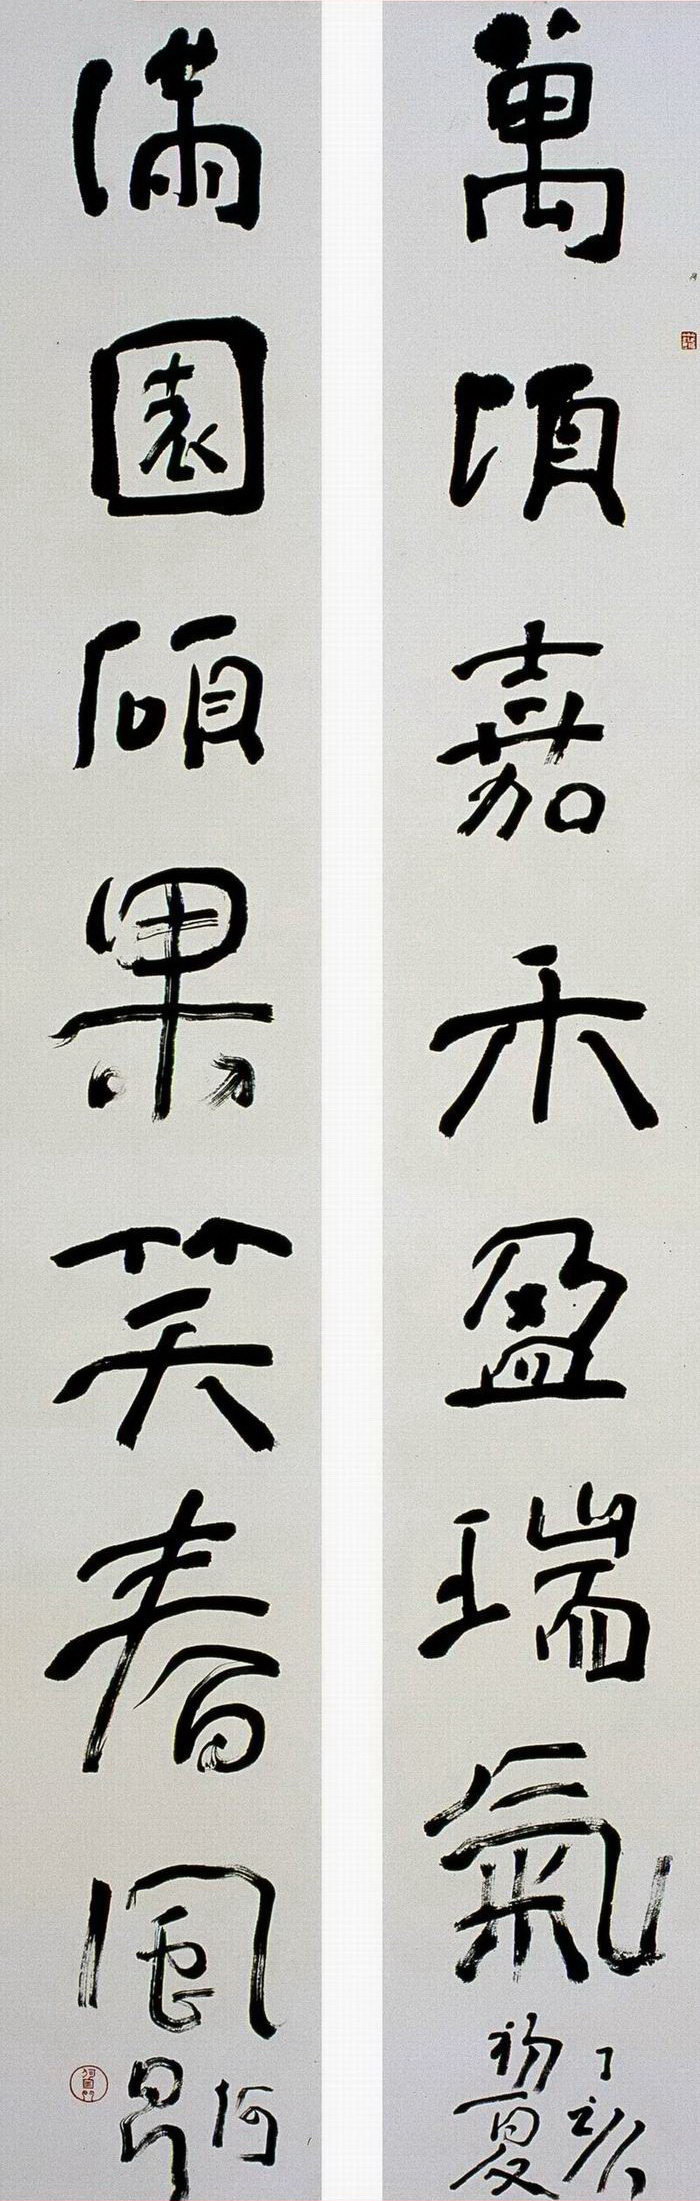 萬頃嘉禾盈瑞氣
丁卯
初夏
滿園碩果笑春風
何